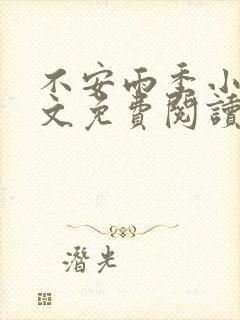 不安雨季小
文免費閱讀
潛光